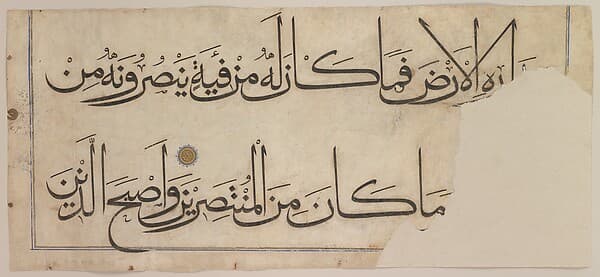 الْاَرْضَ فَمَا كَانَ لَهُ مِنْ فِئَةٍ يَنْصُرُونَهُ مِنْ
مَا كَانَ مِنَ الْمُنْتَصِرِينَ وَاَصْبَحَ الَّذِينَ